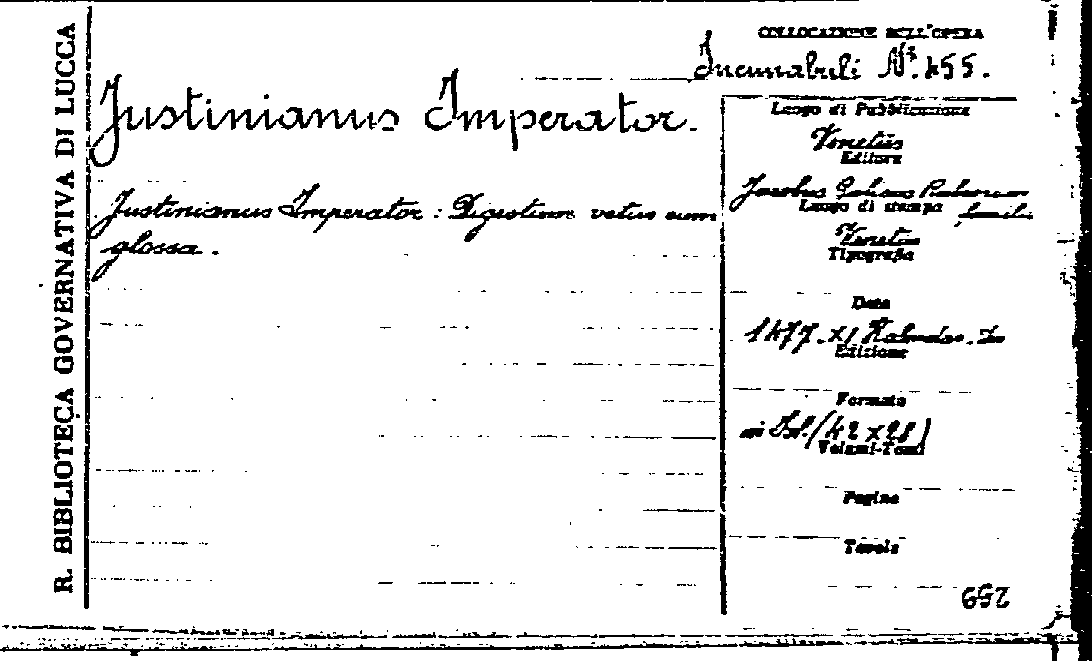 R. BIBLIOTECA GOVERNATIVA DI LUCCA
COLLOCAZIONE DELL'OPERA
Incunabuli N. 455.
Justinianus Imperator.
Justinianus Imperator: Digestum vetus cum
glossa.
Luogo di Pubblicazione
Venetiis
Editore
Jacobus
Luogo di stampa
Venetiis
Tipografia
Data
1477. XI Kalendas
Edizione
Formato
in Fol. (42 x 28)
Volumi-Tomi
Pagine
Tavole
259